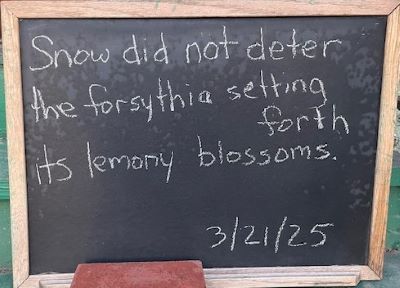 Snow did not deter
the forsythia setting
forth
its lemony blossoms.
3/21/25